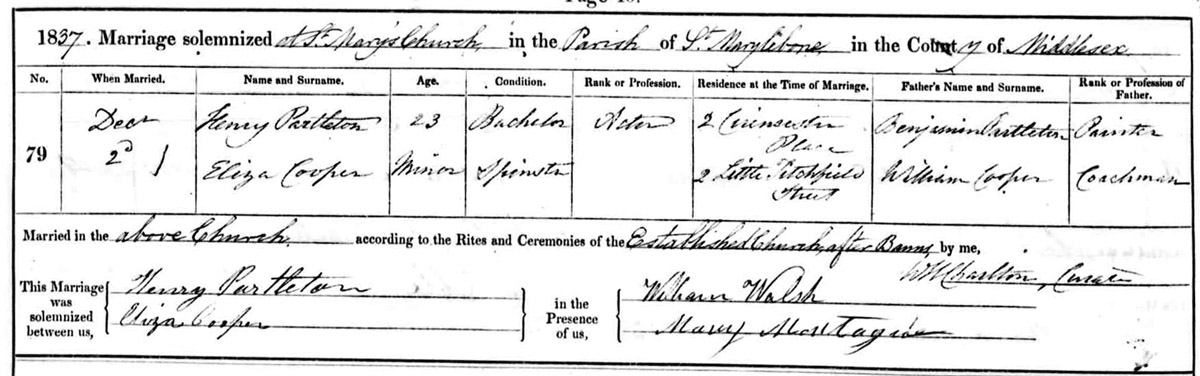 1837. Marriage solemnized at St. Mary's Church, in the Parish of St. Marylebone in the County of Middlesex
No. When Married. Name and Surname. Age. Condition. Rank or Profession. Residence at the Time of Marriage. Father's Name and Surname. Rank or Profession of Father.
79 Decr 2d Henry Partleton 23 Bachelor Actor 2 Cirencester Place Benjamin Partleton Painter
Eliza Cooper Minor Spinster 2 Little Titchfield Street William Cooper Coachman
Married in the above Church, according to the Rites and Ceremonies of the Established Church, after Banns, by me,
Charlton, Curate
This Marriage was solemnized between us, Henry Partleton
Eliza Cooper
in the Presence of us, William Walsh
Mary Montague